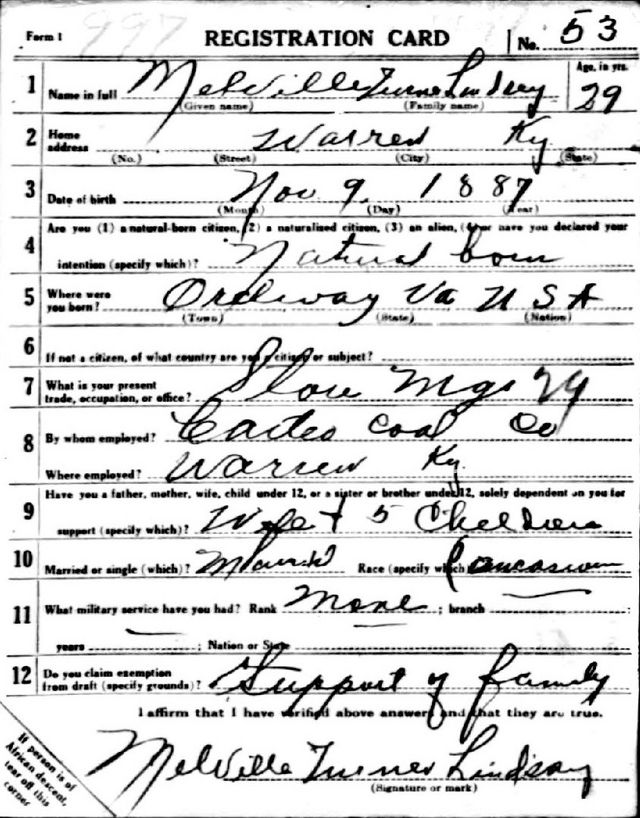 Form 1 REGISTRATION CARD No. 53
1 Name in full Melville Turner Lindsey Age, in yrs. 29
(Given name) (Family name)
2 Home address Warren Ky
(No.) (Street) (City) (State)
3 Date of birth Nov 9 1887
(Month) (Day) (Year)
4 Are you (1) a natural-born citizen, (2) a naturalized citizen, (3) an alien, (4) or have you declared your
intention (specify which)? Natural born
5 Where were you born? Ordway Va U S A
(Town) (State) (Nation)
6 If not a citizen, of what country are you a citizen or subject?
7 What is your present trade, occupation, or office? Store Mgr
8 By whom employed? Coal Co
Where employed? Warren Ky
9 Have you a father, mother, wife, child under 12, or a sister or brother under 12, solely dependent on you for
support (specify which)? Wife + 5 Children
10 Married or single (which)? Married Race (specify which)? Caucasian
11 What military service have you had? Rank None ; branch
years ; Nation or State
12 Do you claim exemption from draft (specify grounds)? Support of family
I affirm that I have verified above answers and that they are true.
Melville Turner Lindsay
(Signature or mark)
If person is of
African descent,
tear off this
corner